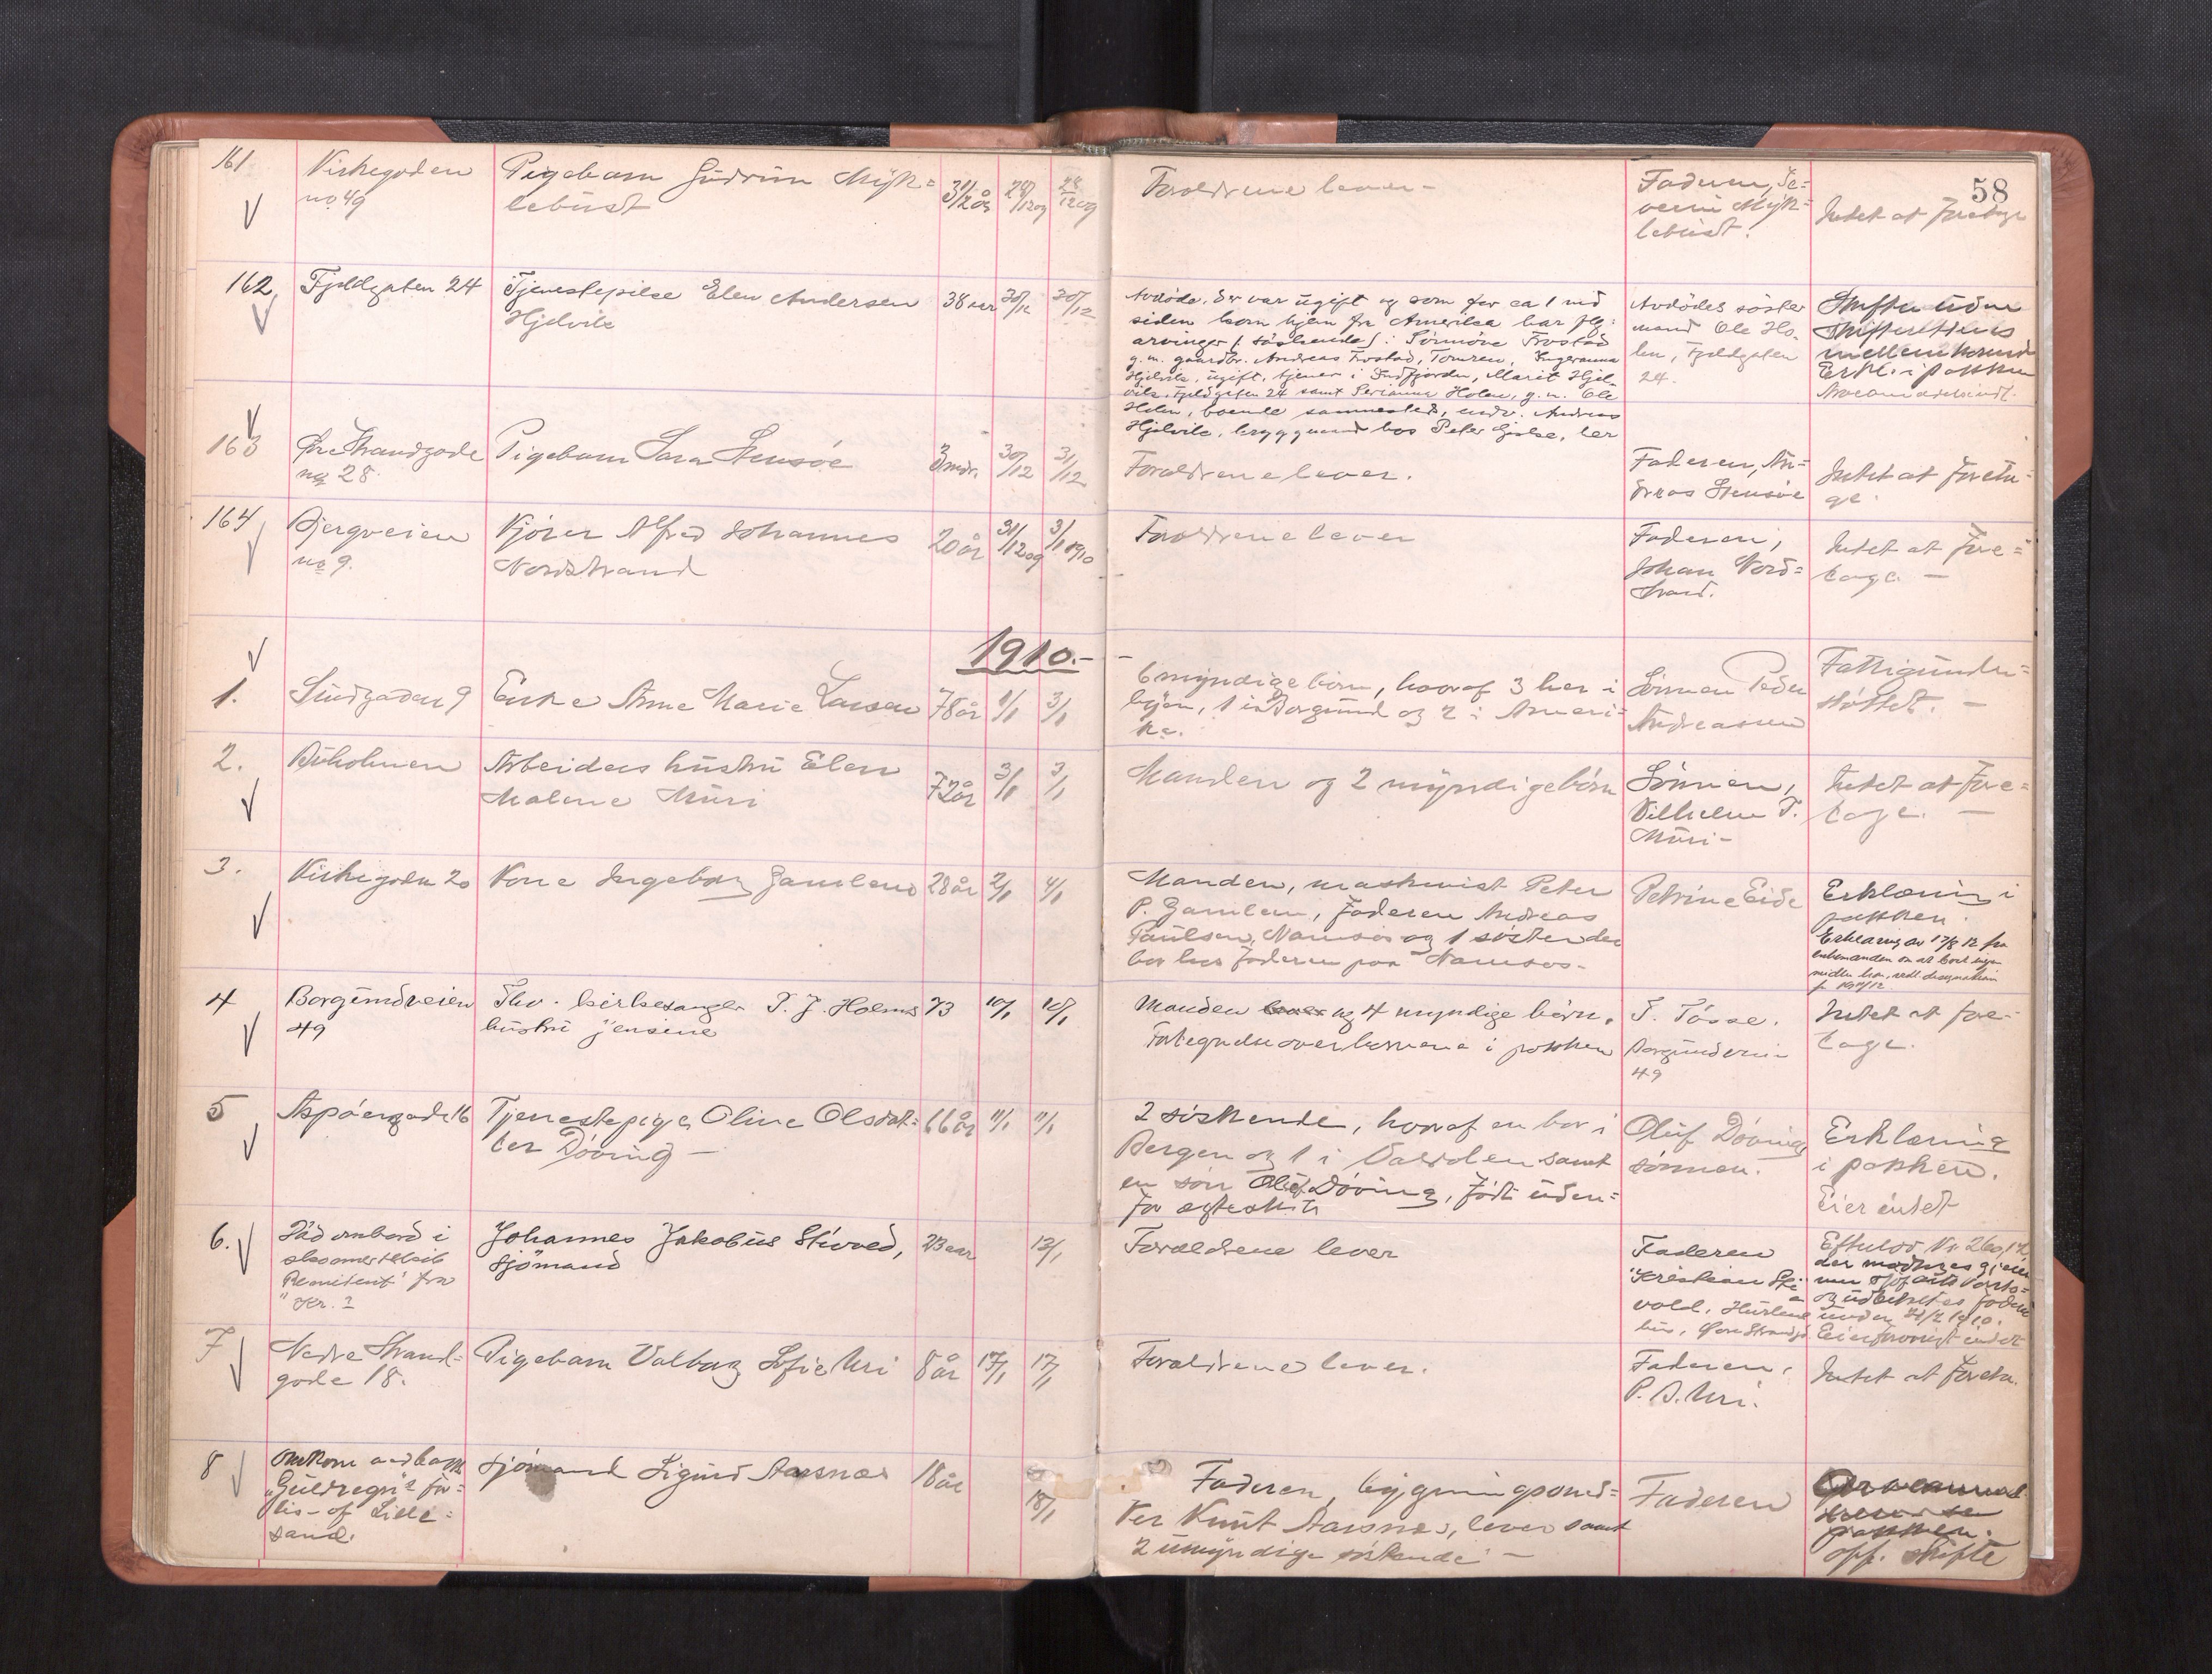 58
161
Kirkegaden
no 49
Pigebarn Gudrun Myk=
lebust
3 1/2 år
28/12 09
Foreldrene lever -
Faderen, Se=
verin Myk=
lebust.
Intet at foretage
162
Fjeldgaten 24
Tjenestepike Elen Andersen
Hjelvik
38 aar
30/12
30/12
Avdöde, der var ugift og som for ca 1 md
siden kom hjem fra Amerika har flg.
arvinger (söskende):
g.m. gaardbr. Andreas Frostad, Tomren, Ingeranna
Hjelvik, ugift, tjener i Indfjorden, Marit Hjel-
vik, Fjeldgaten 24 samt Perianna Holen, g.m. Ole
Holen, boende sammesteds, endv. Andreas
Hjelvik, bryggemand hos Peter
Avdödes söster
mand Ole Ho-
len, Fjeldgaten
24.
Skifte uden
skifterettens
mellemkomst
Erkl. i pakken
163
Øvre Strandgade
no 28
Pigebarn Sara Stensøe
3 mdr.
30/12
31/12
Foreldrene lever.
Faderen, An=
dreas Stensöe
Intet at foreta=
ge.
164
Bjergveien
no 9.
Kjörer Alfred Johannes
Nordstrand
20 år
31/12 09
3/1 1910
Foreldrene lever
Faderen,
Johan Nord=
strand.
Intet at fore=
tage. -
1910.-
1.
Sundgaden 9
Enke Anne Marie Larsen
78 år
1/1
3/1
6 myndige börn, hvoraf 3 her i
byen, 1 i Borgund og 2 i Ameri=
ka.
Sönnen Peder
Andreassen
Fattigunder=
støttet. -
2.
Buholmen
Arbeiders hustru Elen
Malene Muri
72 år
3/1
3/1
Manden og 2 myndige börn
Sönnen,
Vilhelm T.
Muri -
Intet at fore=
tage. -
3.
Kirkegaden 20
Kone Ingeborg Gamlem
28 år
2/1
4/1
Manden, maskinist Peter
P. Gamlem, faderen Andreas
Paulsen, Namsos og 1 söster der
bor hos faderen paa Namsos -
Petrine Eide
Erklæring i
pakken.
Erklæring av 17/8 12 fra
4
Borgundveien
49
Fhv. kirkesanger P. J. Holms
hustru Jensine
73
10/1
10/1
Manden lever og 4 myndige börn.
Fortegnelse over barnene i pakken
T. Tösse.
Borgundveien
49
Intet at fore-
tage.
5
Aspöengade 16
Tjenestepige Oline Olsdat=
ter Döving -
66 år
11/1
11/1
2 söskende, hvoraf en bor i
Bergen og 1 i Valdalen samt
en sön Oluf Döving, født uden=
for egteskab
Oluf Döving
sönnen.
Erklæring
i pakken.
Eier intet
6.
Död ombord i
fra
Johannes Jakobus Stivold,
Sjömand
23 aar
13/1
Forældrene lever
Faderen
Kristian Sti=
vold,
Øvre Strandgd
7
Nedre Strand=
gade 18.
Pigebarn Valborg Sofie Uri
8 år
17/1
17/1
Foreldrene lever.
Faderen,
P. A. Uri.
Intet at foreta.
8
Omkom med bark
"Guldregn" for=
lis - af Lille=
sand.
Sjömand Sigurd Aarsnes
18 år
18/1
Faderen, bygningssned=
ker Knut Aarsnes, lever samt
2 umyndige söskende -
Faderen
pakken.
off. skifte